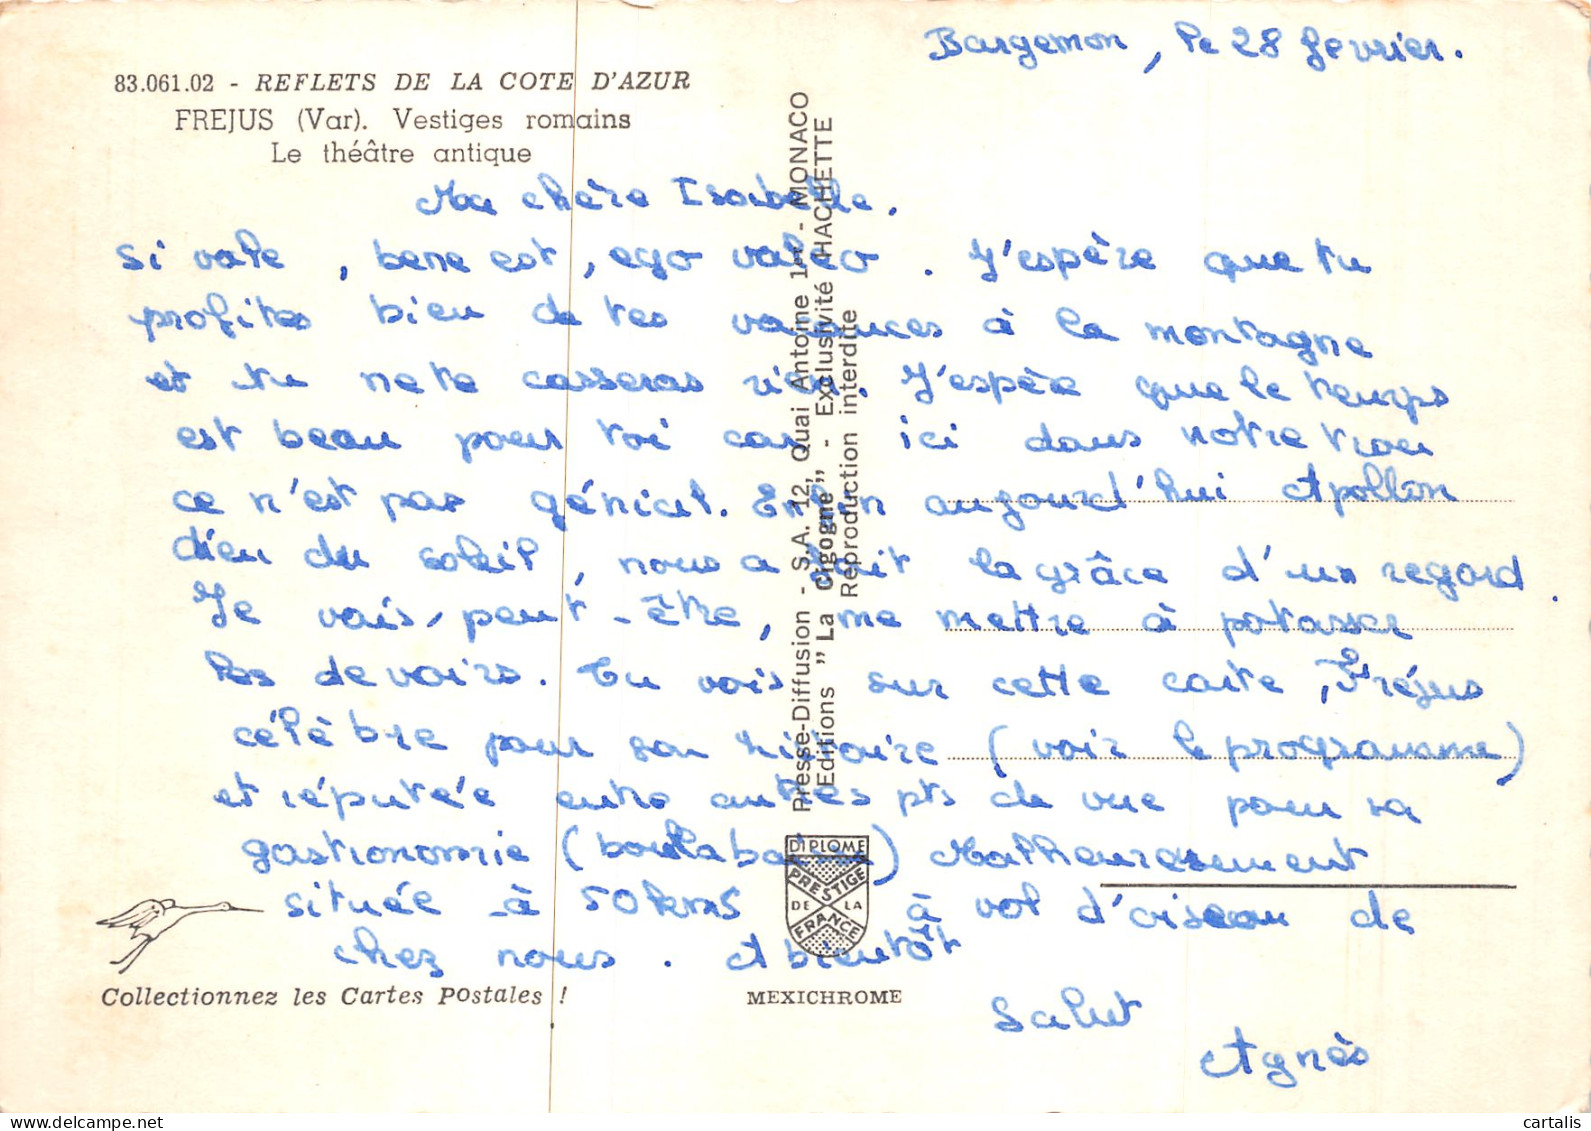 Bargemon, le 28 fevrier.
83.061.02 - REFLETS DE LA COTE D'AZUR
FREJUS (Var). Vestiges romains
Le théâtre antique
Ma chère Isabelle.
Si vale, bene est, ego valeo. J'espère que tu
profites bien de tes vacances à la montagne
et tu ne te casseras rien. J'espère que le temps
est beau pour toi car ici dans notre trou
ce n'est pas génial. Enfin aujourd'hui Apollon
dieu du soleil, nous a fait la grâce d'un regard.
Je vais, peut-être, me mettre à potasser
les devoirs. Tu vois sur cette carte, Fréjus
célèbre pour son histoire (voir le programme)
et réputée entre autres pts de vue pour sa
gastronomie (bouillabaisse) Malheureusement
située à 50 kms à vol d'oiseau de
chez nous. A bientôt
Salut
Agnès
Presse-Diffusion - S.A. 12, Quai Antoine 1er - MONACO
Editions "La Cigogne" - Exclusivité HACHETTE
Reproduction interdite
DIPLOME
PRESTIGE
DE LA
FRANCE
Collectionnez les Cartes Postales !
MEXICHROME
cartalis
delcampe.net